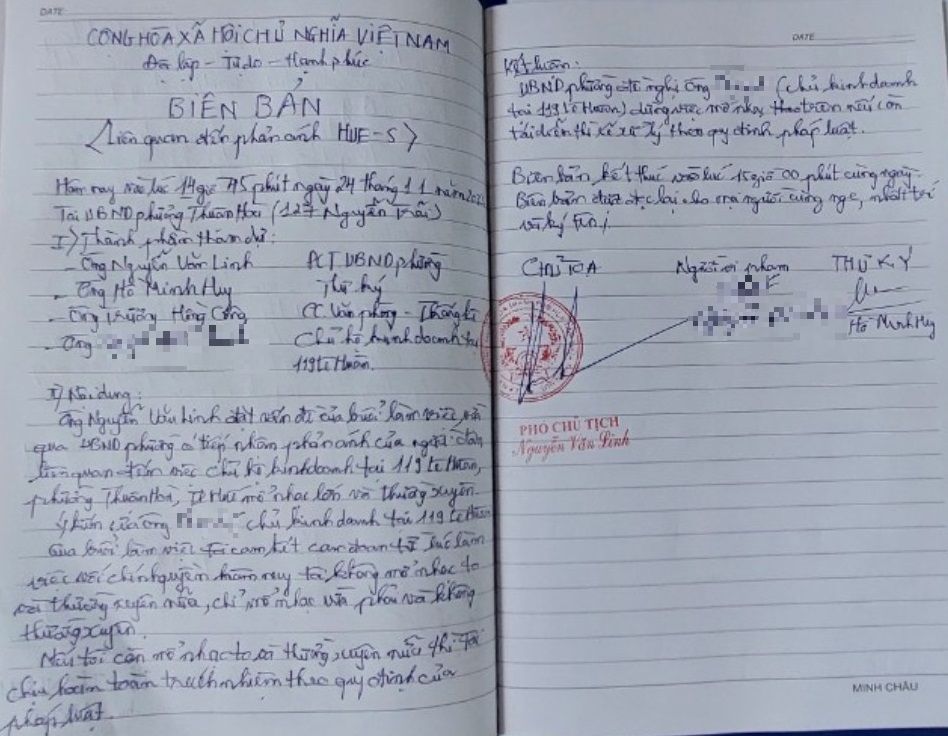 DATE
CỘNG HÒA XÃ HỘI CHỦ NGHĨA VIỆT NAM
Độc lập - Tự do - Hạnh phúc
BIÊN BẢN
<Liên quan đến phản ánh HUE-S>
Hôm nay vào lúc 14 giờ 45 phút ngày 24 tháng 11 năm
Tại UBND phường Thuận Hòa (127 Nguyễn Trãi)
I) Thành phần tham dự:
- Ông Nguyễn Văn Linh PCT UBND phường
- Ông Hồ Minh Huy Thư ký
- Ông Trương Hồng Công CC Văn phòng - Thống kê
- Ông Chủ hộ kinh doanh tại
119 Lê Huân.
II) Nội dung:
Ông Nguyễn Văn Linh đặt vấn đề của buổi làm việc, vừa
qua UBND phường có tiếp nhận phản ánh của người dân
liên quan đến việc chủ hộ kinh doanh tại 119 Lê Huân,
phường Thuận Hòa, TP Huế mở nhạc lớn và thường xuyên.
Ý kiến của ông chủ kinh doanh tại 119 Lê Huân
Qua buổi làm việc tôi cam kết cam đoan từ lúc làm
việc với chính quyền hôm nay tôi không mở nhạc to
và thường xuyên nữa, chỉ mở nhạc vừa phải và không
thường xuyên.
Nếu tôi còn mở nhạc to và thường xuyên nữa thì tôi
chịu hoàn toàn trách nhiệm theo quy định của
pháp luật.
DATE
Kết luận:
UBND phường đề nghị ông (chủ kinh doanh
tại 119 Lê Huân) dừng việc mở nhạc theo trên nếu còn
tái diễn thì sẽ xử lý theo quy định pháp luật.
Biên bản kết thúc vào lúc 15 giờ 00 phút cùng ngày.
Biên bản được đọc lại cho mọi người cùng nghe, nhất trí
và ký tên./
CHỦ TỌA Người vi phạm THƯ KÝ
Hồ Minh Huy
PHÓ CHỦ TỊCH
Nguyễn Văn Linh
MINH CHÂU